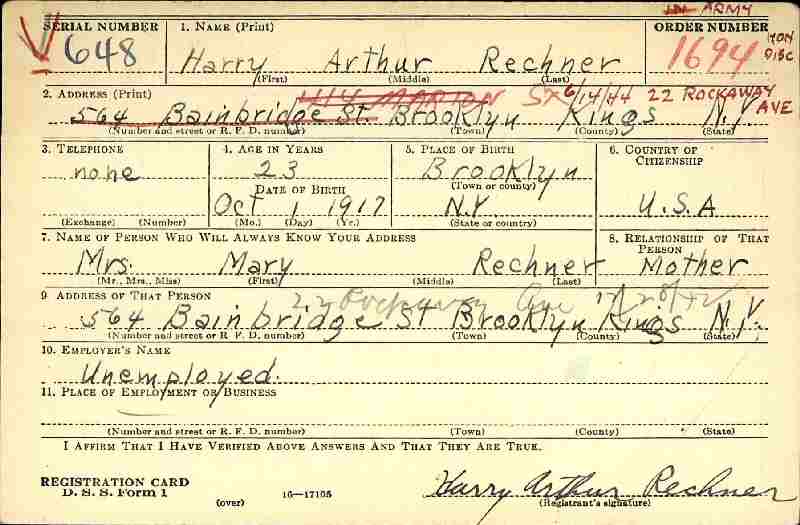 IN ARMY
SERIAL NUMBER 1. NAME (Print) ORDER NUMBER
V 648 Harry Arthur Rechner 1694
(First) (Middle) (Last)
2. ADDRESS (Print) 6/14/44 22 ROCKAWAY AVE
564 Bainbridge St. Brooklyn Kings N.Y.
(Number and street or R. F. D. number) (Town) (County) (State)
3. TELEPHONE 4. AGE IN YEARS 5. PLACE OF BIRTH 6. COUNTRY OF CITIZENSHIP
none 23 Brooklyn
DATE OF BIRTH (Town or county)
Oct 1 1917 N.Y. U.S.A
(Exchange) (Number) (Mo.) (Day) (Yr.) (State or country)
7. NAME OF PERSON WHO WILL ALWAYS KNOW YOUR ADDRESS 8. RELATIONSHIP OF THAT PERSON
Mrs. Mary Rechner Mother
(Mr., Mrs., Miss) (First) (Middle) (Last)
9 ADDRESS OF THAT PERSON 22 Rockaway Ave
564 Bainbridge St Brooklyn Kings N.Y.
(Number and street or R. F. D. number) (Town) (County) (State)
10. EMPLOYER'S NAME
Unemployed.
11. PLACE OF EMPLOYMENT OR BUSINESS
(Number and street or R. F. D. number) (Town) (County) (State)
I AFFIRM THAT I HAVE VERIFIED ABOVE ANSWERS AND THAT THEY ARE TRUE.
REGISTRATION CARD Harry Arthur Rechner
D. S. S. Form 1 (over) 16—17105 (Registrant's signature)